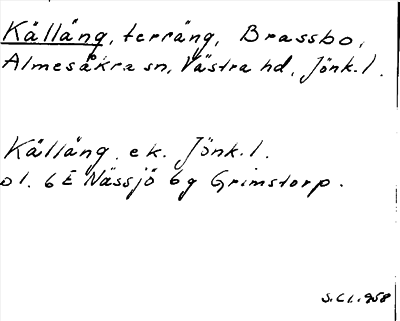 Källäng, terräng, Brassbo,
Almesåkra sn, Västra hd, Jönk.l.
Källäng ek. Jönk.l.
bl. 6E Nässjö 6g Grimstorp.
1958